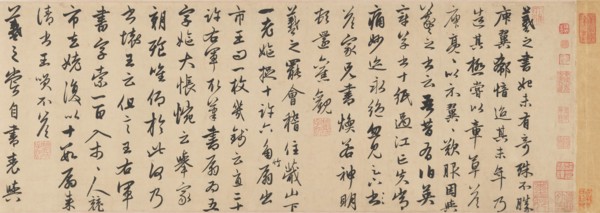 羲之書初未有奇殊不勝
庾翼郗愔迨其末年乃
造其極嘗以章草答
庾亮亮以示翼翼歎服因與
羲之書云吾昔有伯英
章草書十紙過江亡失常
痛妙迹永絕忽見足下
答家兄書煥若神明
頓還舊觀
羲之罷會稽住蕺山下
一老嫗捉十許六角竹扇出
市王問一枚幾錢云直二十
許右軍取筆書扇扇為五
字嫗大悵惋云舉家
朝飡惟仰於此何乃
書壞王云但言王右軍
書字索一百入市市人競
市去姥復以十數扇來
請書王笑不答
羲之嘗自書表與